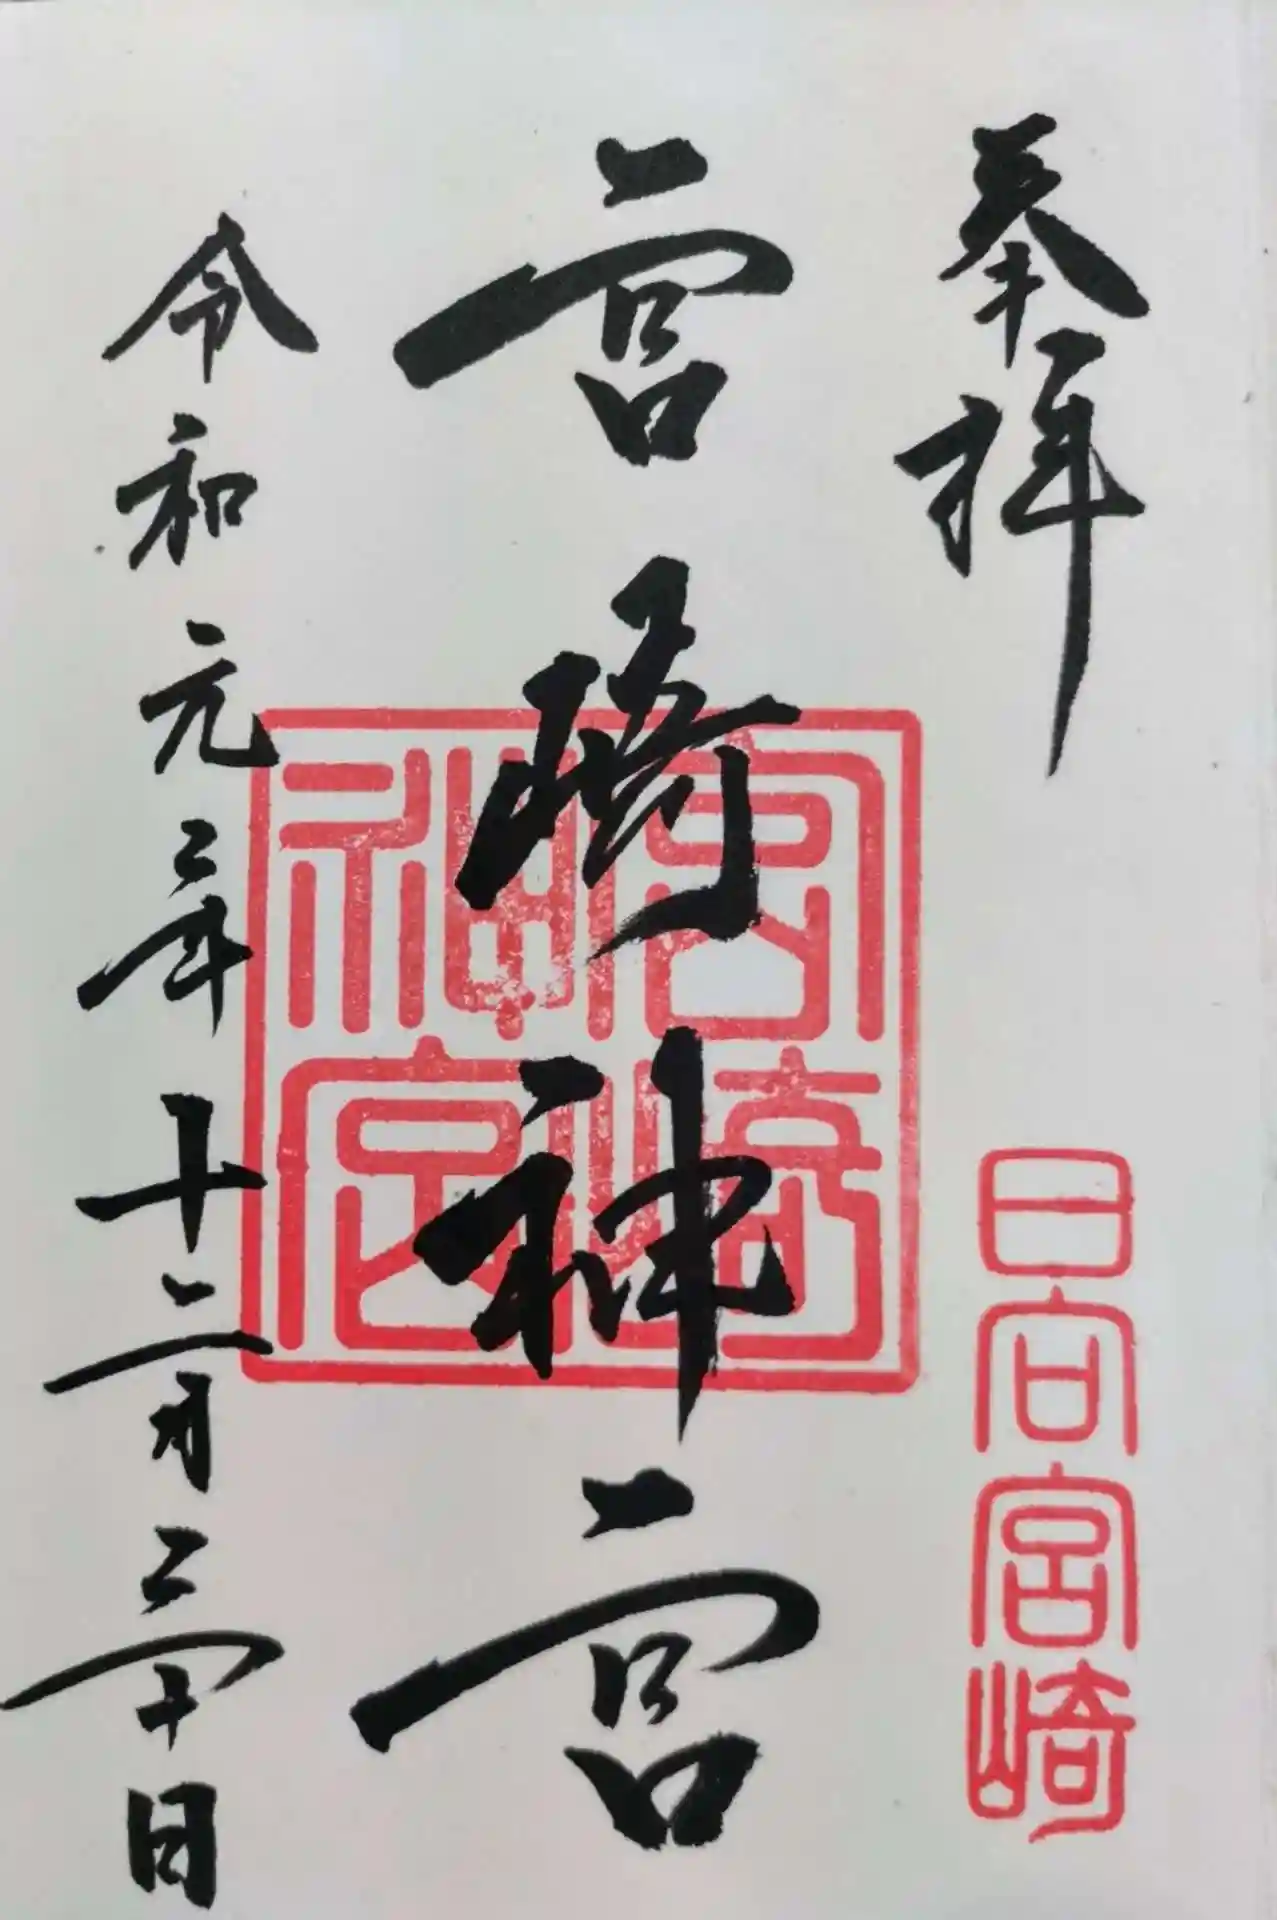 奉拝
日向宮崎
宮崎神宮
宮崎
神宮
令和元年十二月三十日